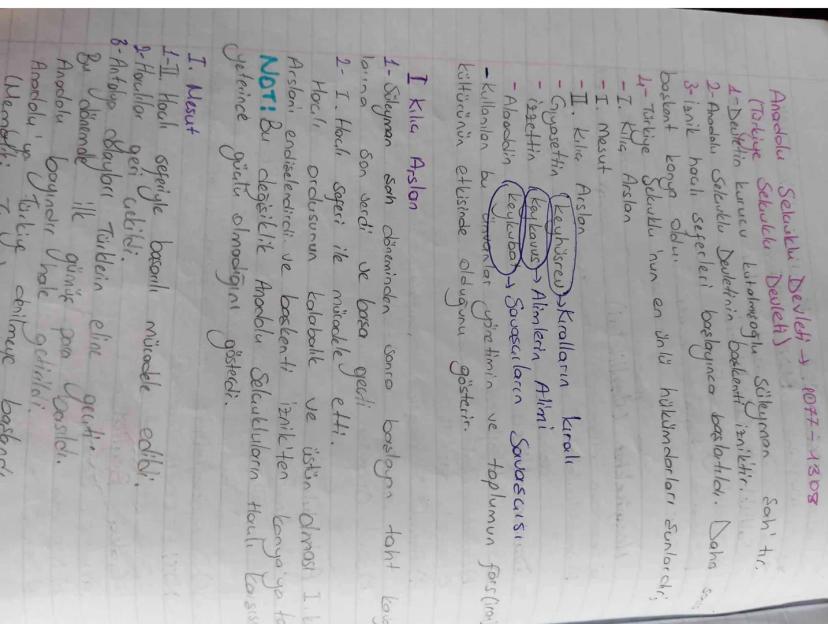 Anadolu Selçuklu Devleti → 1077-1308
(Türkiye Selçuklu Devleti)
1- Devletin kurucu kutalmısoğlu Süleyman Şah'tır.
2- Anadolu Selçuklu Devletinin başkenti izniktir.
3- iznik haçlı seferleri başlayınca başlatıldı. Daha
başkent konya oldu.
4- Türkiye Selçuklu'nun en ünlü hükümdarları şunlardır;
- I. Kılıç Arslan
- I. mesut
- II. Kılıç Arslan
- Gıyasettin keyhüsrev → Kıralların kıralı
- izzettin keykavus → Alimlerin Alimi
- Alaaddin keykubat → Savaşcıların Savaşcısı
- Kullanılan bu ünvanlar yönetimin ve toplumun fars (iran)
kültürünün etkisinde olduğunu gösterir.
I Kılıç Arslan
1- Süleyman şah döneminden sonra başlayan taht
larına son verdi ve başa geçti
2- I. Haçlı seferi ile mücadele etti.
Haçlı ordusunun kalabalık ve üstün olması I.
Arslanı endişelendirdi ve başkenti iznik'ten konya'ya
NOT! Bu değişiklik Anadolu Selçukluların Haçlı
yeterince güçlü olmadığını gösterdi.
I. Mesut
1- II. Haçlı seferiyle başarılı mücadele edildi.
2- Haçlılar geri çekildi.
3- Antalya olayları Türklerin eline geçti.
Bu dönemde ilk gümüş para basıldı.
Anadolu bayındır hale getirildi.
Anadolu'ya Türkiye denilmeye başlandı.